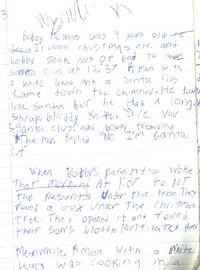 bobby Thomas was 4 years old
It was christmas eve and
bobby snuk out of bed to see
santa Clus at 12:37 A man with
a white beard and a Santa Clus
came down the chimney. He look
like santa but he had a long
shrap bloddy knife. are you
Santa Clus said bobby
The man Replied No I'm Santa
cut
When Bobbys parents woke
That morning at
The Presents under the tree they
found a box under the christmas
Tree. They opened it and found
Their son's bloody Multilated
Meanwhile, A man with a white
beard was cooking in a